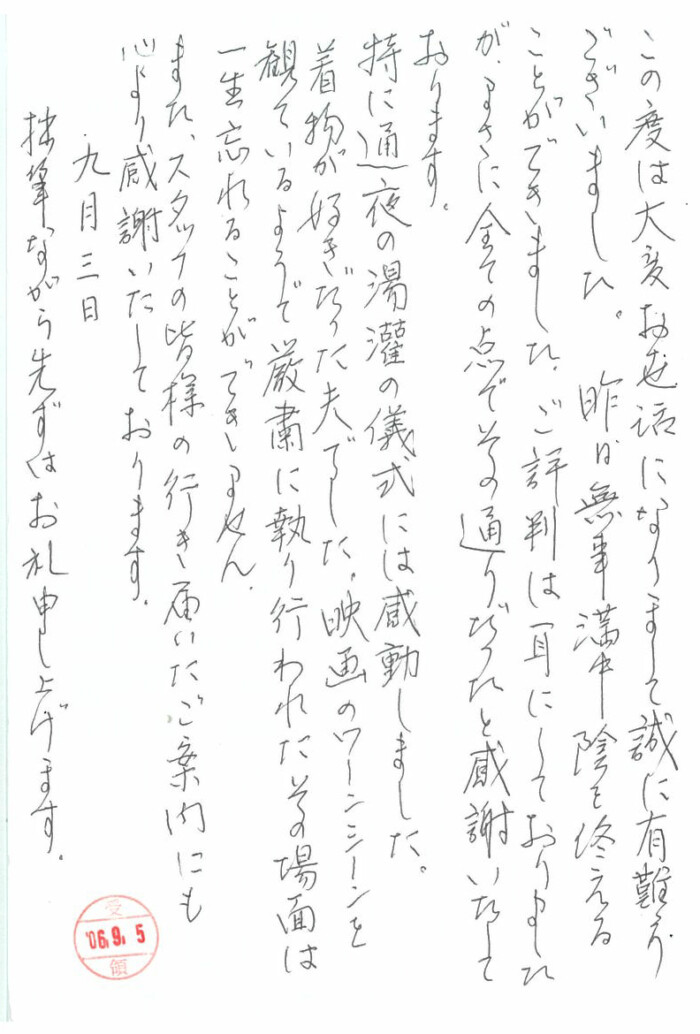 この度は大変お世話になりまして誠に有難う
ございました。昨日無事満中陰を終える
ことができました。ご評判は耳にしておりました
が、まさに全ての点でその通りだったと感謝いたして
おります。
特に通夜の湯灌の儀式には感動しました。
着物が好きだった夫でした。映画のワーンシーンを
観ているようで厳粛に執り行われたその場面は
一生忘れることができません。
また、スタッフの皆様の行き届いたご案内にも
心より感謝いたしております。
九月三日
拙筆ながら先ずはお礼申し上げます。
受
'06.9.5
領